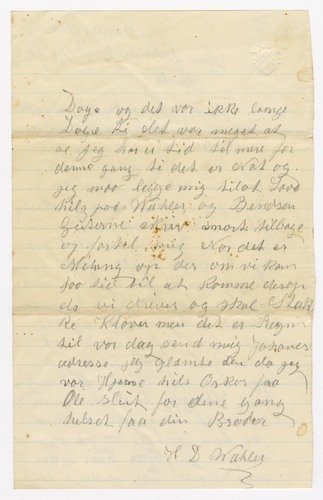 Dage og det var ikke lange
Dage ti det var meget at
se jeg har ei tid til mere for
denne gang ti det er nat og
jeg maa legge mig til at Sove
hils paa Wahler og Bendsen
skriv snart tilbage
og fortel mig vor det er
op der om vi kan
faa tid til at komme derop
da vi driver og skal Stak
ke Klöver men det er Regn
til vor dag send mig
adresse jeg glemte den da jeg
var Hjeme hils Onker fra
Ole Slut for dene gang
helset fra din Broder
H D Wahler